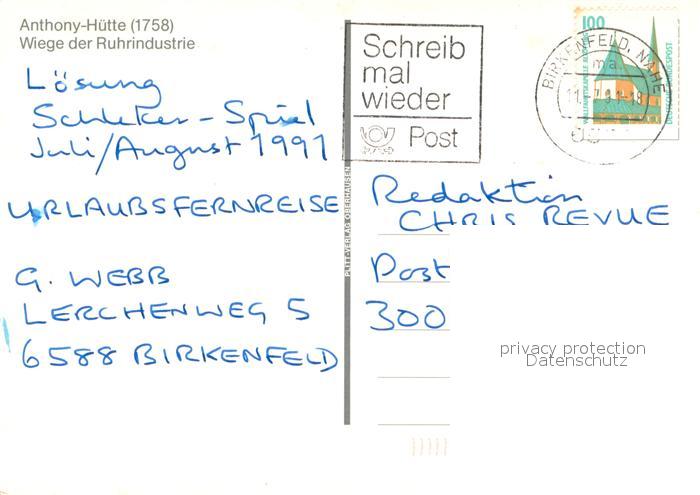 Anthony-Hütte (1758)
Wiege der Ruhrindustrie
Lösung
Schleker-Spiel
Juli/August 1991
URLAUBSFERNREISE
G. WEBB
LERCHENWEG 5
6588 BIRKENFELD
PLITT-VERLAG OBERHAUSEN
Schreib
mal
wieder
Post
100
DEUTSCHE BUNDESPOST
BIRKENFELD, NAHE
Redaktion
CHRIS REVUE
Post
300
privacy protection
Datenschutz